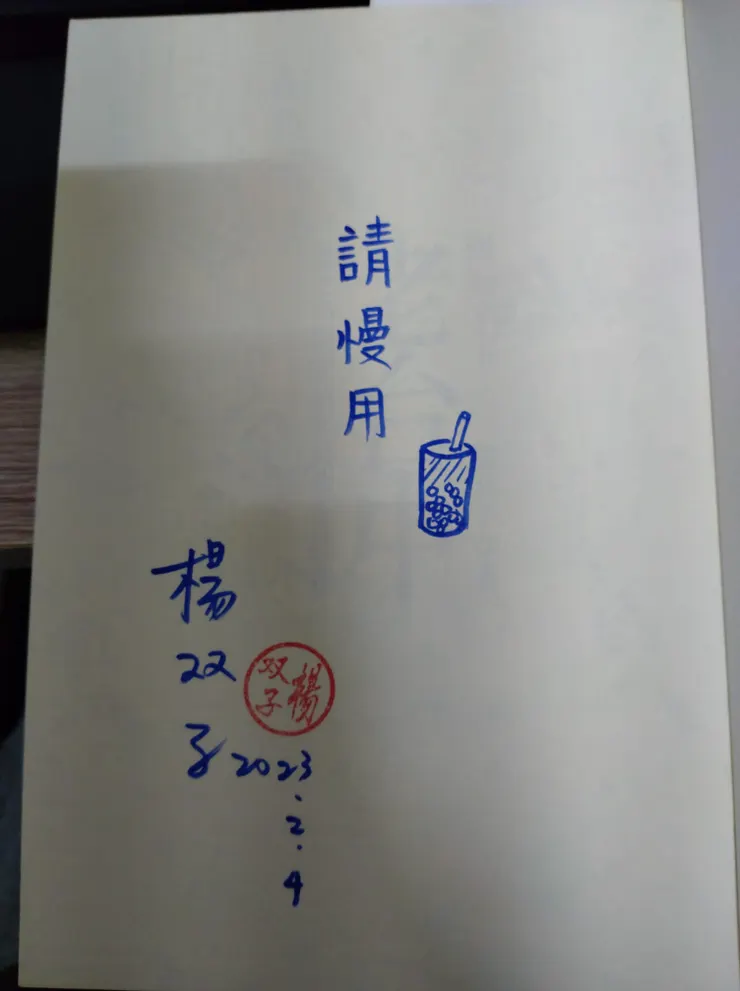 請慢用
楊双子
楊双子
2023.2.4